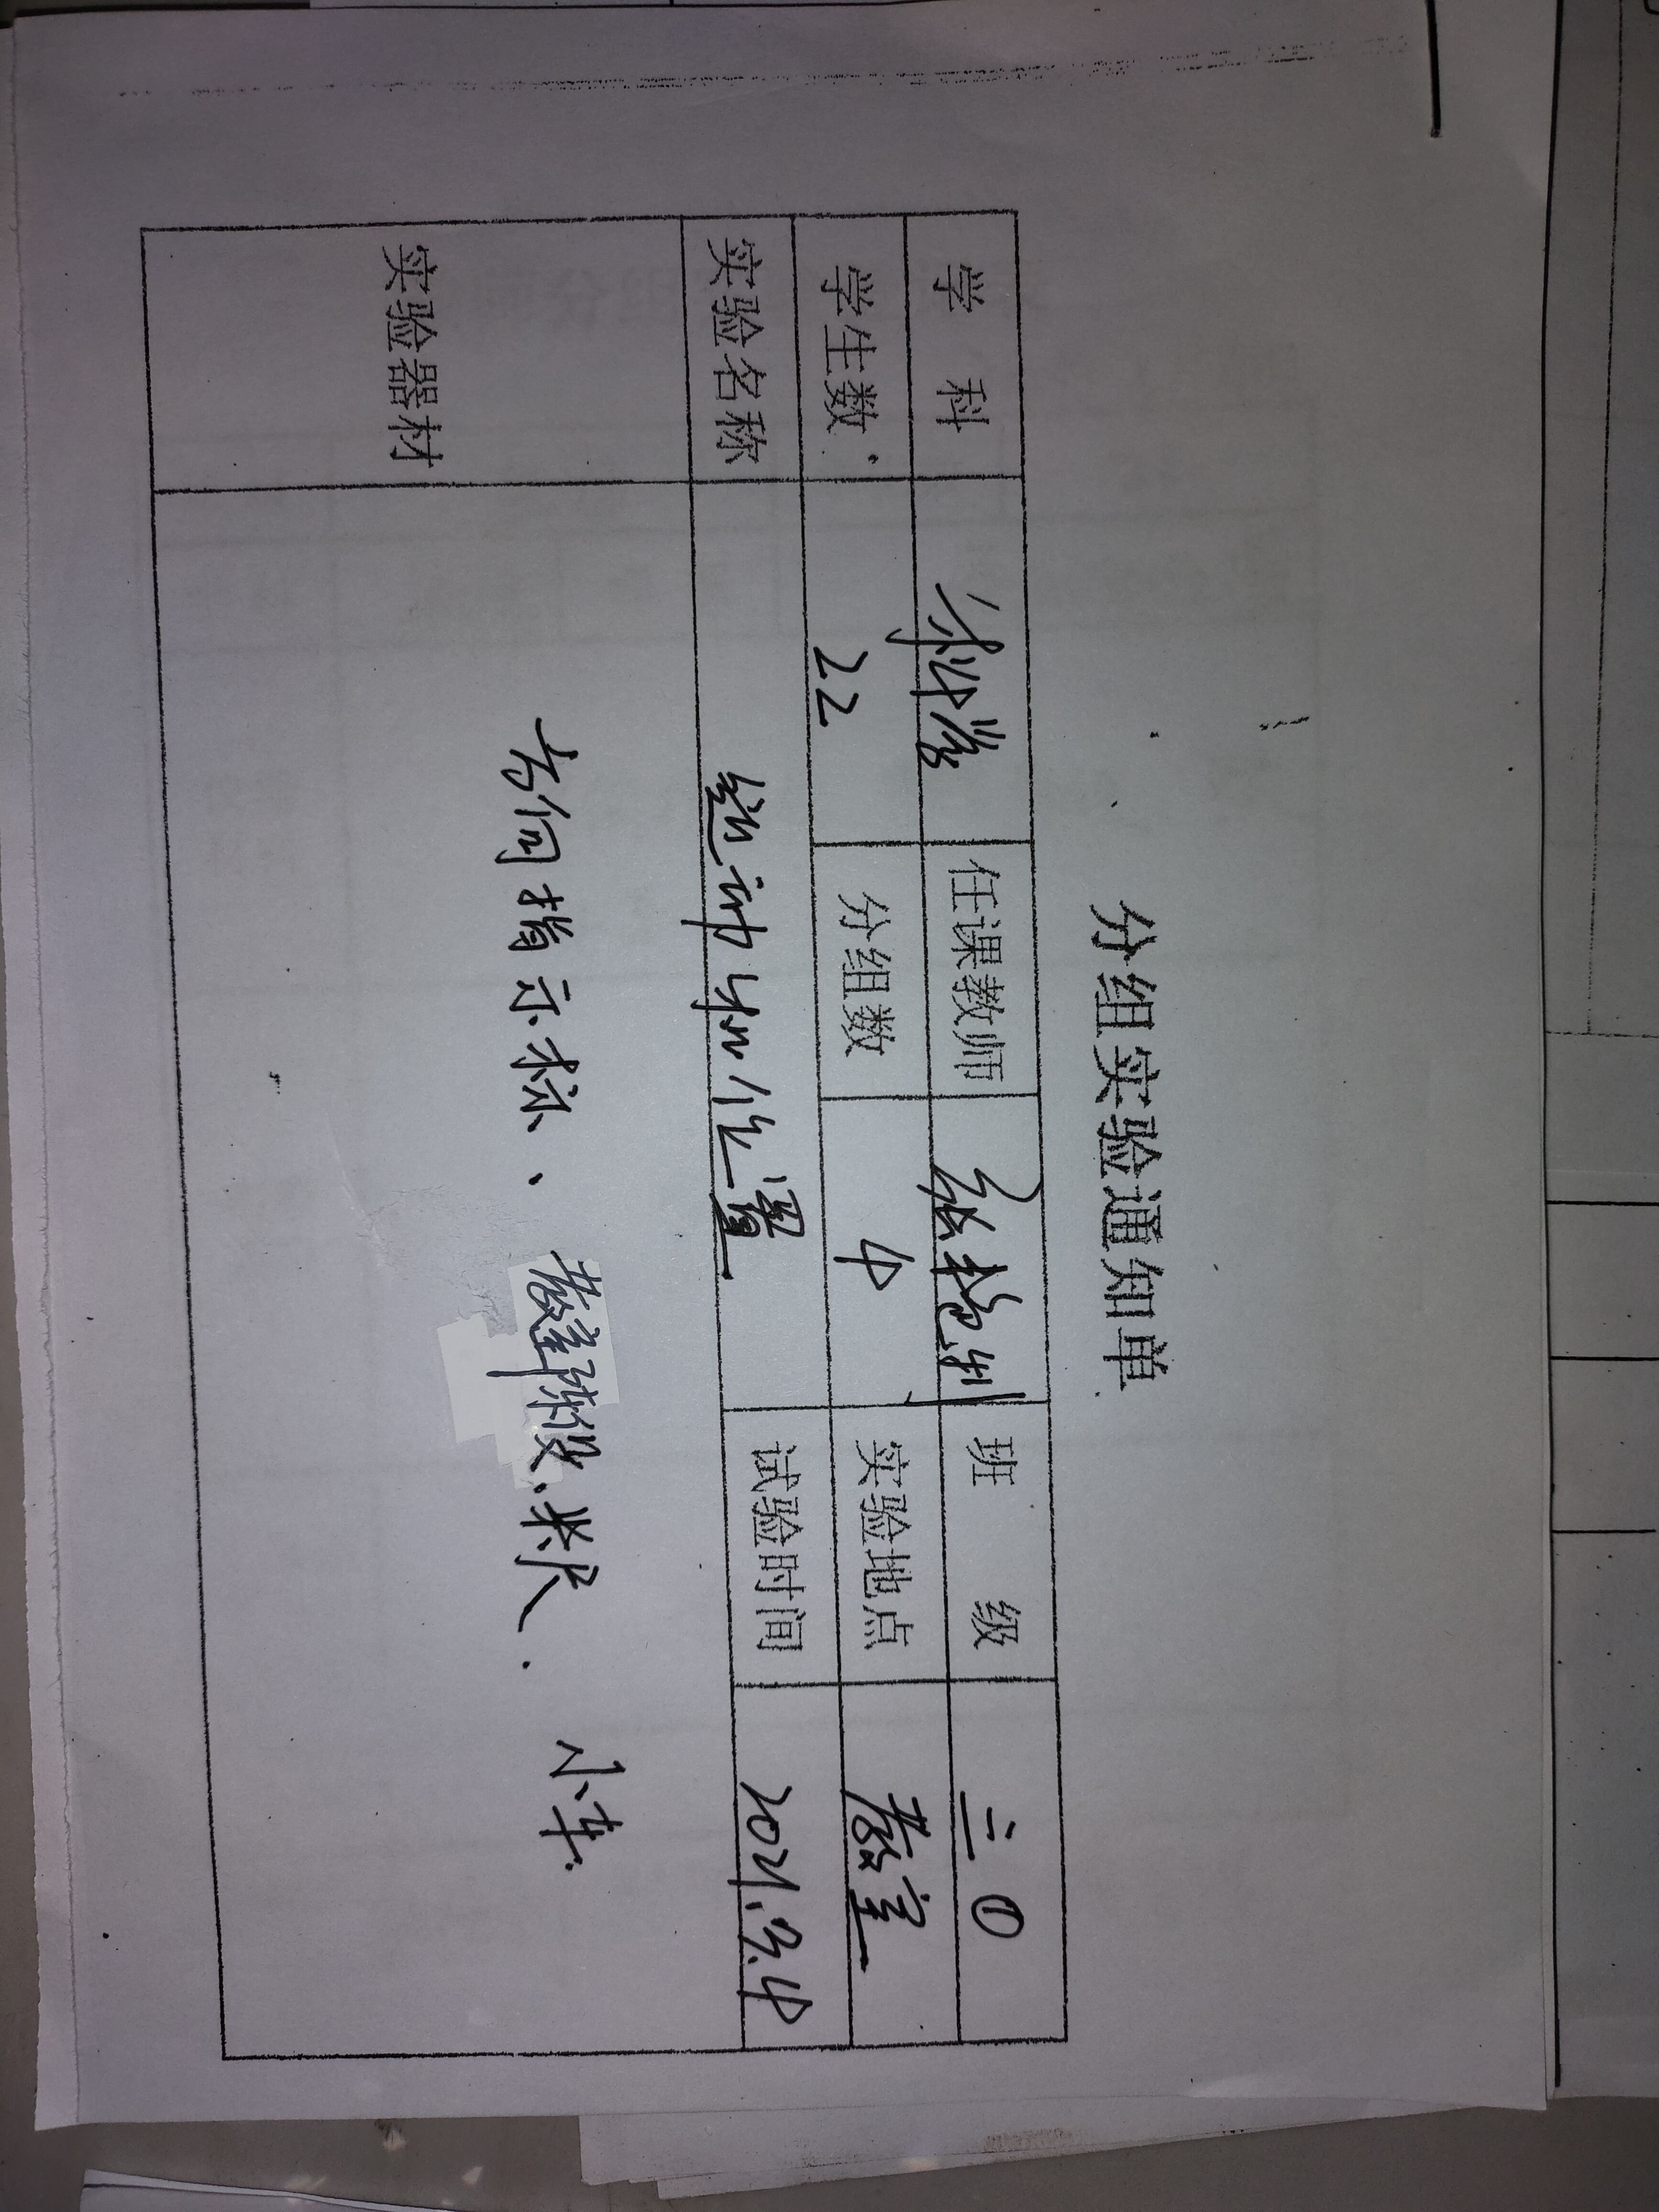 分组实验通知单
学 科 科学 任课教师 张艳 班 级 三①
学生数 22 分组数 4 实验地点 教室
实验名称 运动和位置 试验时间 2021.3.4
实验器材 方向指示标、教室陈设、米尺、小车